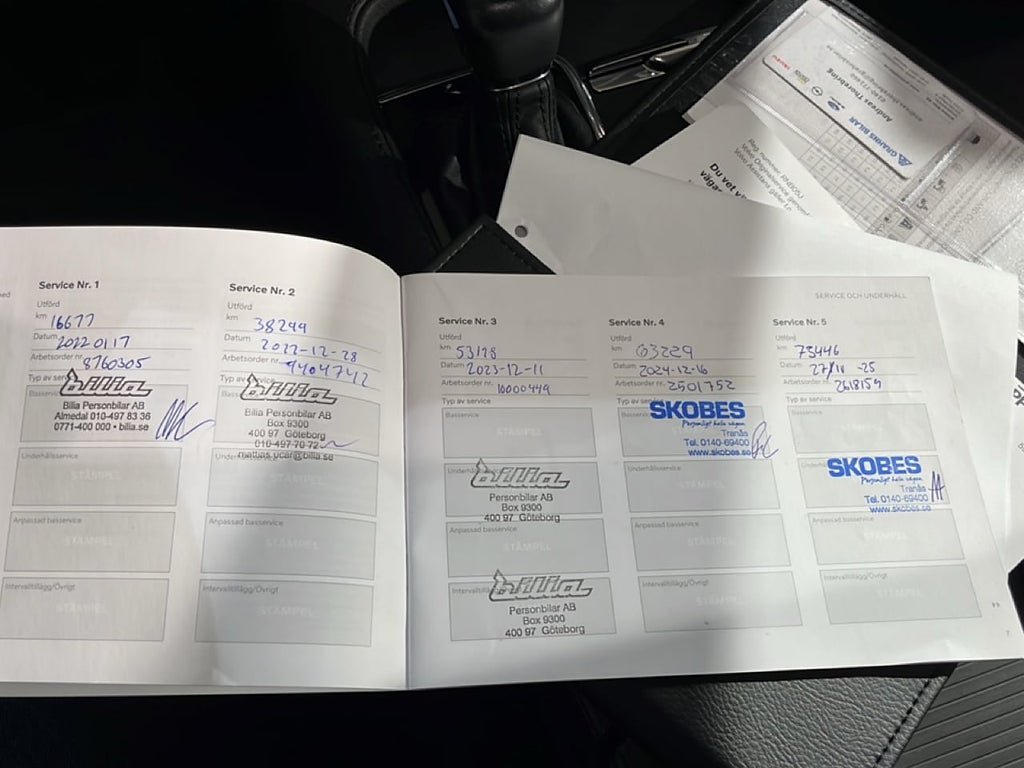 Service Nr. 1
Utförd
km 16677
Datum 20220117
Arbetsorder nr. 8760305
Typ av service
bilia
Bilia Personbilar AB
Almedal 010-497 83 36
0771-400 000 • bilia.se
Underhållsservice
STÄMPEL
Anpassad basservice
STÄMPEL
Intervalltillägg/Övrigt
STÄMPEL
Service Nr. 2
Utförd
km 38299
Datum 2022-12-28
Arbetsorder nr. 9404742
Typ av service
bilia
Bilia Personbilar AB
Box 9300
400 97 Göteborg
010-497 70 72
mattias.ucar@bilia.se
Underhållsservice
STÄMPEL
Anpassad basservice
STÄMPEL
Intervalltillägg/Övrigt
STÄMPEL
SERVICE OCH UNDERHÅLL
Service Nr. 3
Utförd
km 53128
Datum 2023-12-11
Arbetsorder nr. 10000449
Typ av service
Basservice
STÄMPEL
Underhållsservice
bilia
Personbilar AB
Box 9300
400 97 Göteborg
Anpassad basservice
STÄMPEL
Intervalltillägg/Övrigt
bilia
Personbilar AB
Box 9300
400 97 Göteborg
Service Nr. 4
Utförd
km 63229
Datum 2024-12-16
Arbetsorder nr. 2501752
Typ av service
Basservice
SKOBES
Personligt hela vägen
Tranås
Tel. 0140-69400
www.skobes.se
Underhållsservice
STÄMPEL
Anpassad basservice
STÄMPEL
Intervalltillägg/Övrigt
STÄMPEL
Service Nr. 5
Utförd
km 75446
Datum 27/11 -25
Arbetsorder nr. 2618159
Typ av service
Basservice
STÄMPEL
SKOBES
Personligt hela vägen
Tranås
Tel. 0140-69400
www.skobes.se
Anpassad basservice
STÄMPEL
Intervalltillägg/Övrigt
STÄMPEL
7
Reg. nummer: RNB05U
Volvo Originalservice genomf
Volvo Assistans gäller t.o
Du vet v
väga
GRAHNS BILAR
Andreas Thorebring